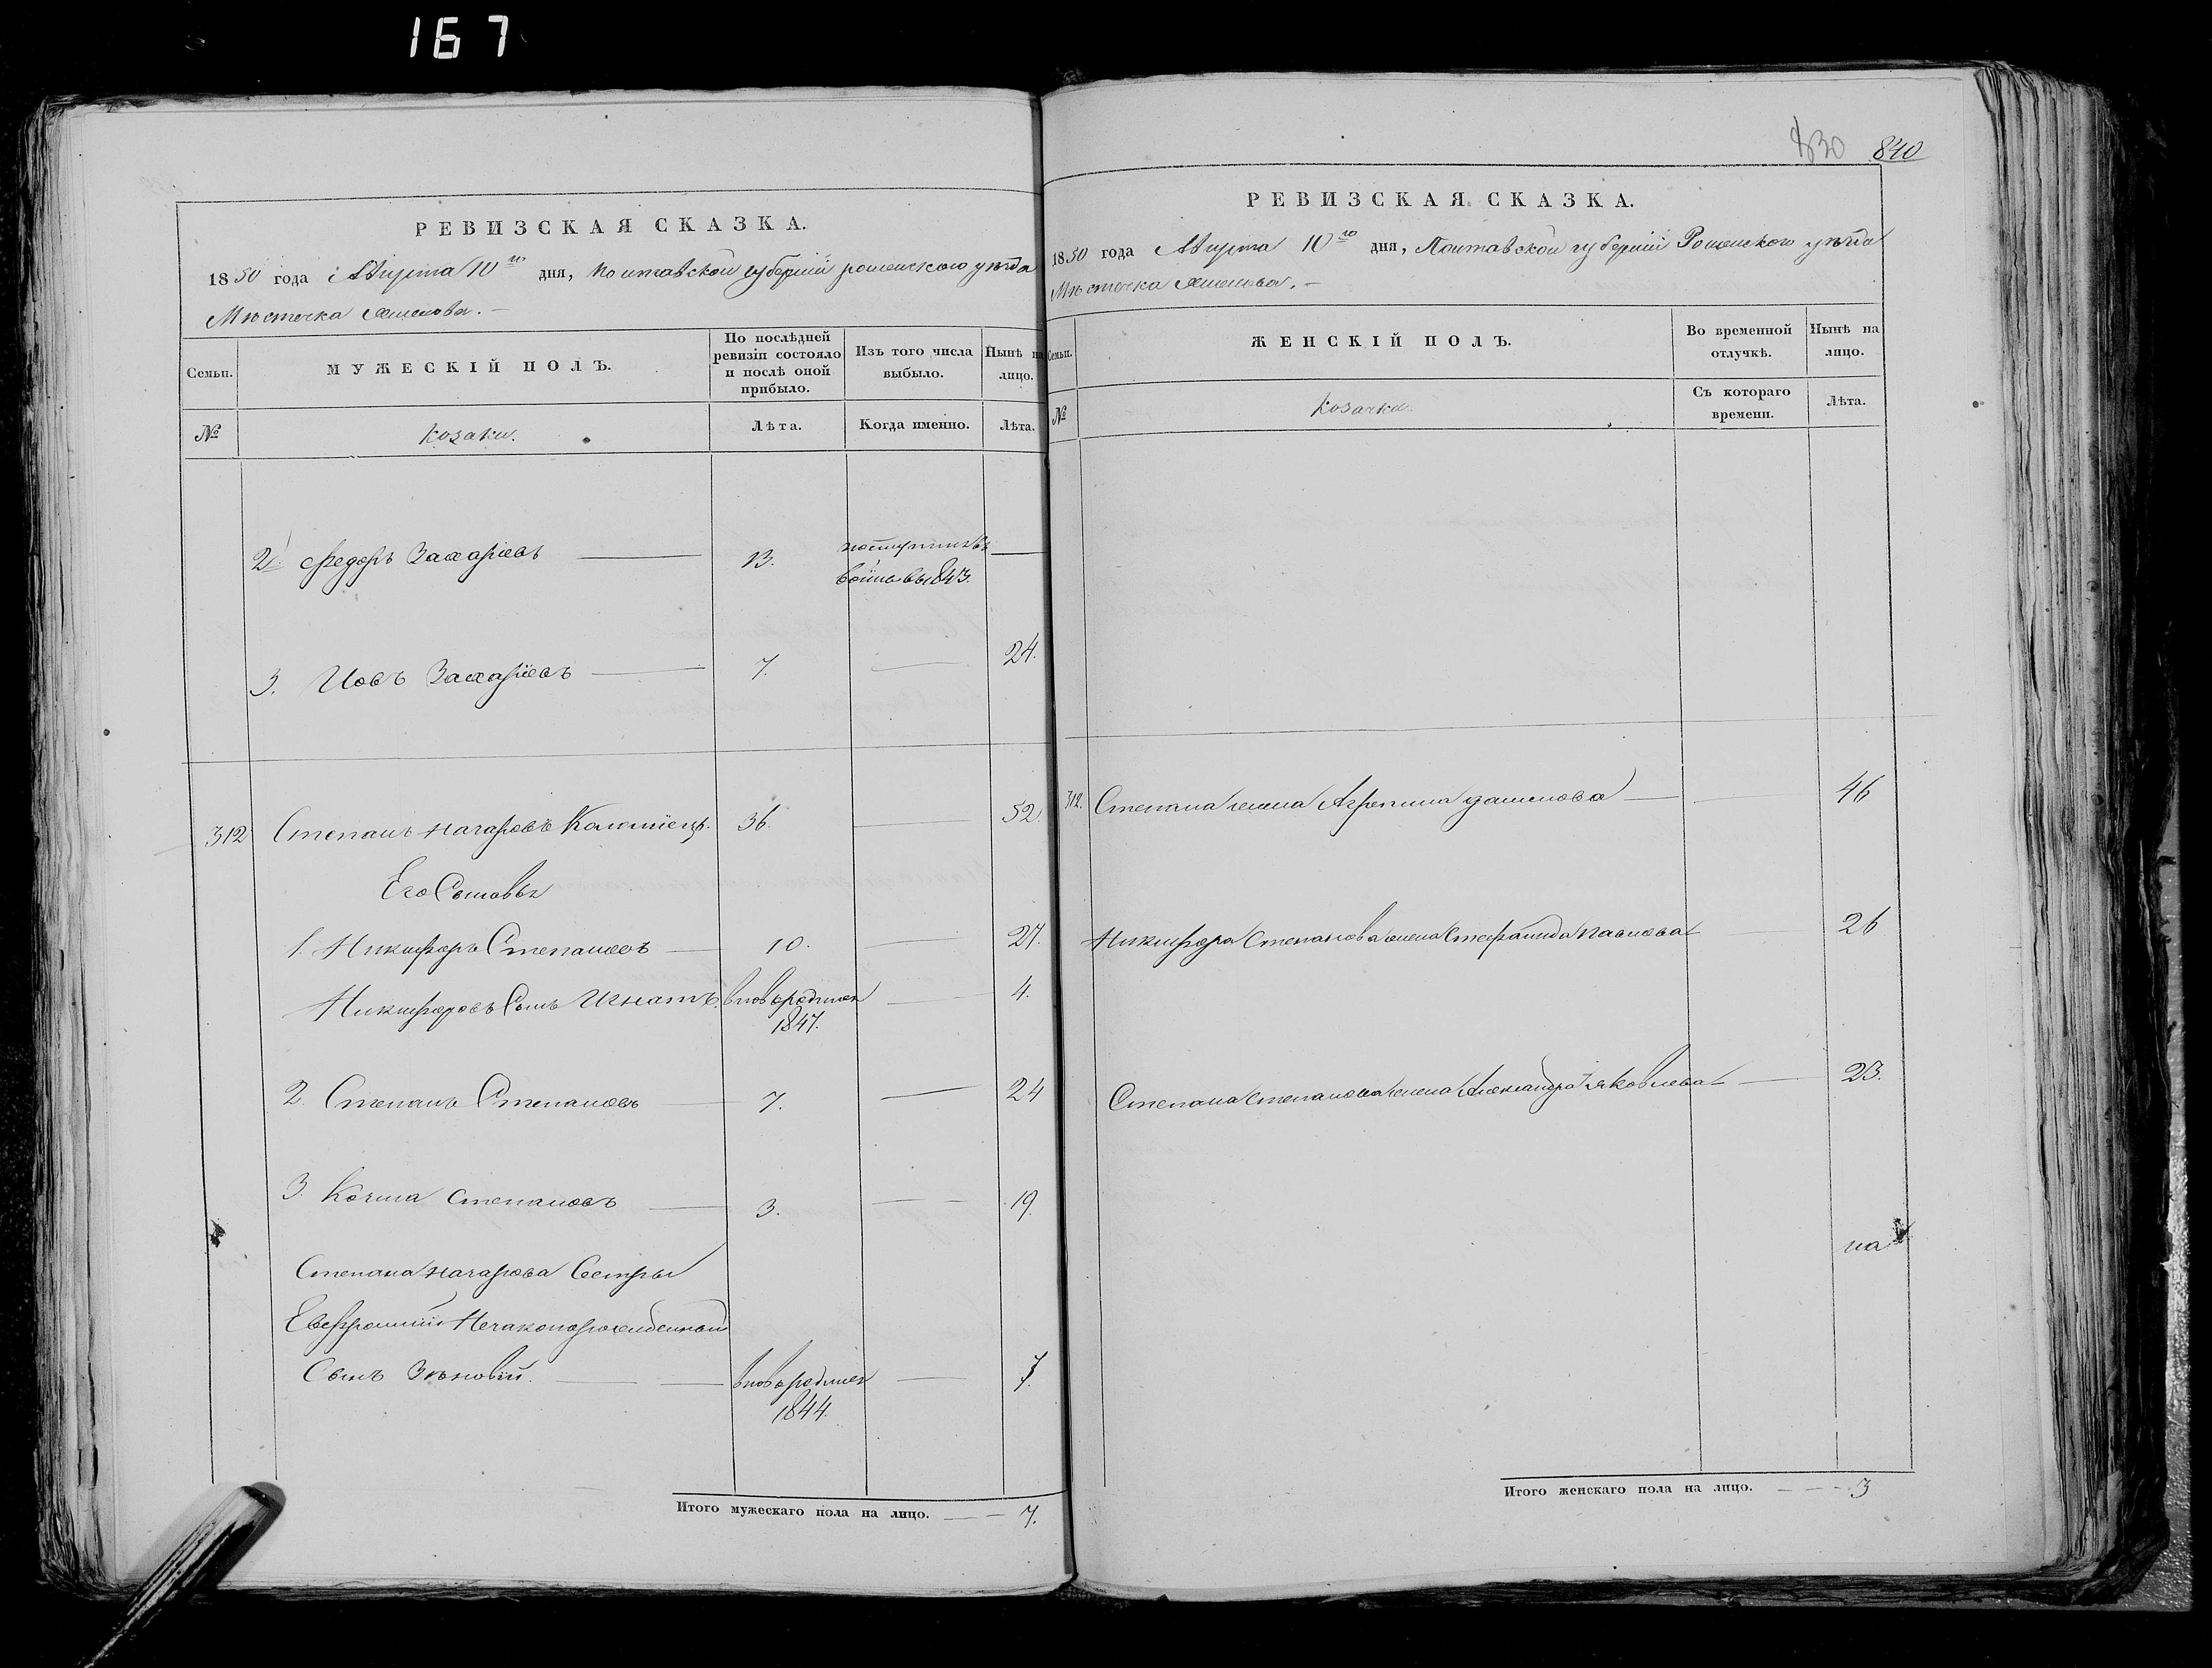 167
РЕВИЗСКАЯ СКАЗКА.
1850 года Августа 10го дня, Полтавской губерніи роменского уѣзда
Мѣстечка
Семьи.
МУЖЕСКІЙ ПОЛЪ.
По послѣдней ревизіи состояло и послѣ оной прибыло.
Изъ того числа выбыло.
Нынѣ на лицо.
№
козаки.
Лѣта.
Когда именно.
Лѣта.
2. Федоръ Захаріевъ — 13. —
843.
3. Іовъ Захаріевъ — 7. — 24.
312 Степанъ Назаровъ Коломіецъ. 36. — 52.
Его Сыновья
1. Никифоръ Степановъ — 10. — 27.
Никифоровъ Сынъ Игнатъ. вновьрожден — 4.
1847.
2. Степанъ Степановъ — 7. — 24
3. Козма Степановъ — 3. — 19.
Степана Назарова Сестры
Евфросиніи Незаконорожденный
Сынъ Зѣновій. — — вновьрожден — 7.
1844.
Итого мужескаго пола на лицо. — — 7.
830 840
РЕВИЗСКАЯ СКАЗКА.
1850 года Августа 10го дня, Полтавской губерніи Роменского уѣзда
Мѣстечка
Семьи.
ЖЕНСКІЙ ПОЛЪ.
Во временной отлучкѣ.
Нынѣ на лицо.
№
козачки.
Съ котораго времени.
Лѣта.
312. Степана жена Агрепина данилова — — 46
Никифора Степанова жена Стефанида Павлова — 26
Степана Степанова жена Александра Яковлева — 23.
на
Итого женскаго пола на лицо. — — — 3